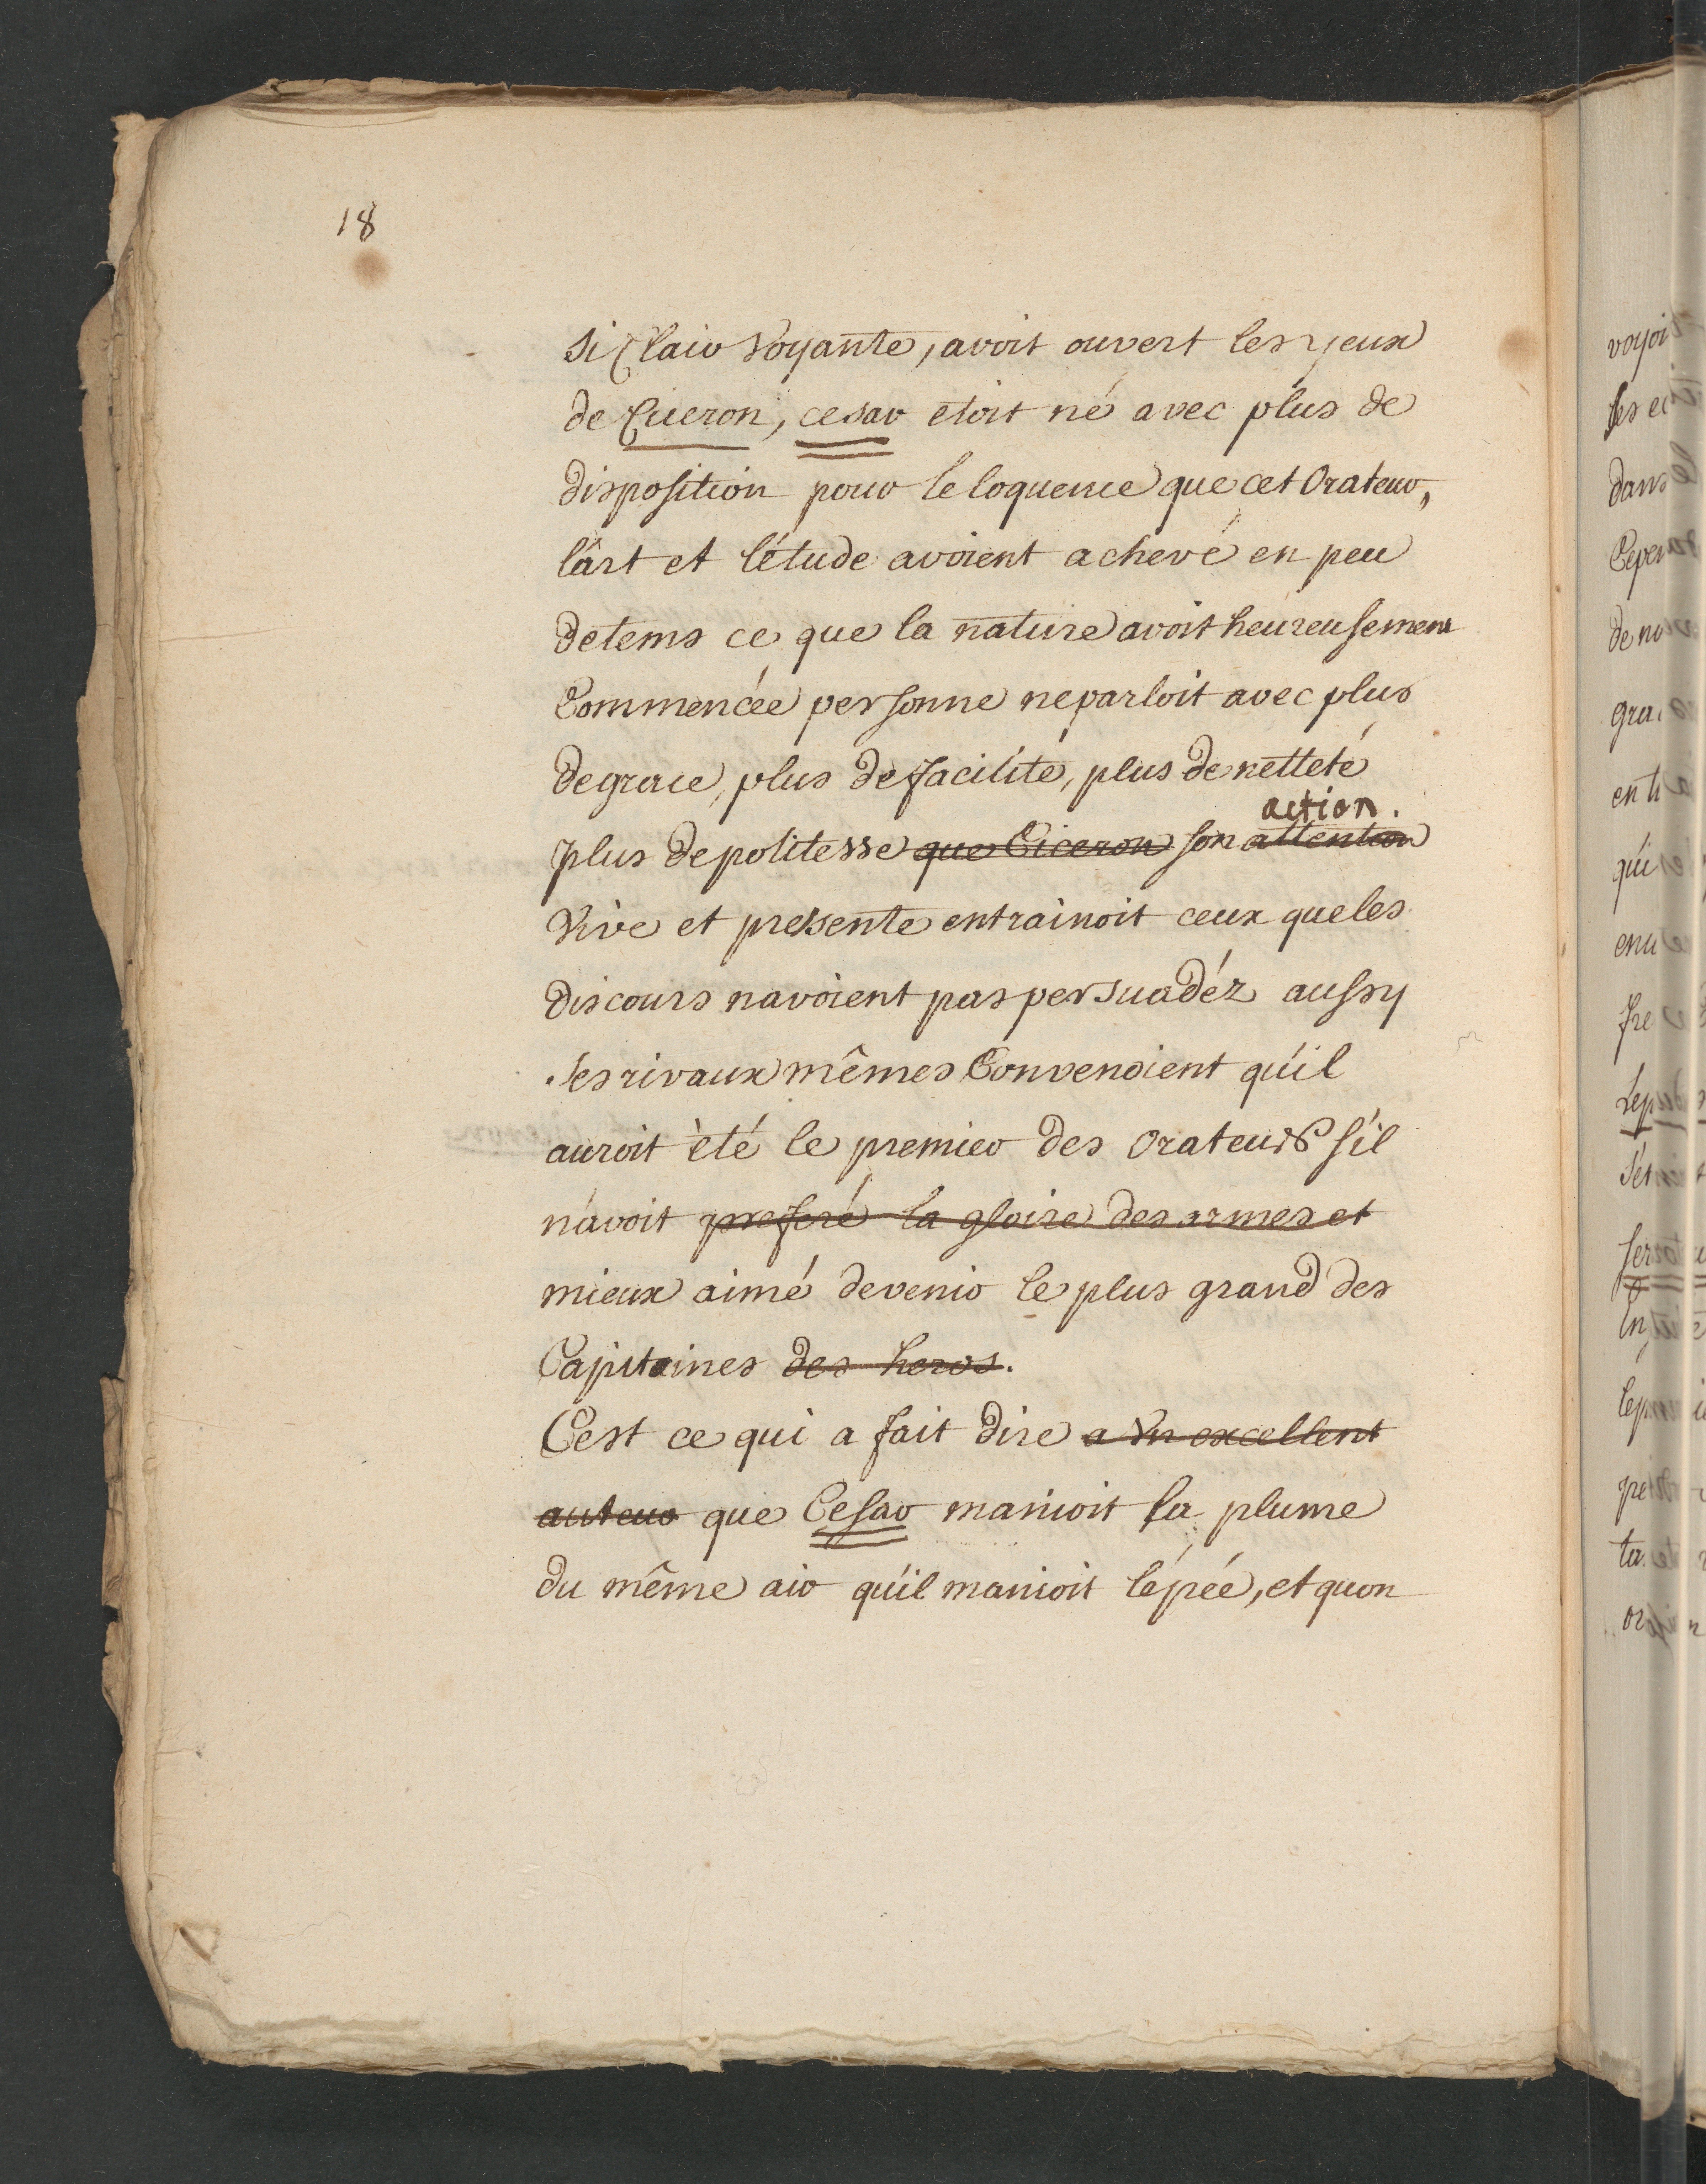 18
si Clair Voyante, avoit ouvert les yeux
de Ciceron, cesar etoit né avec plus de
disposition pour leloquence que cet Orateur,
l'art et l'étude avoient achevé en peu
detems ce que la nature avoit heureusement
Commencée personne neparloit avec plus
degrace, plus defacilité, plus denetteté
action.
plus depolitesse que Ciceron son attention
Vive et presente entrainoit ceux queles
discours navoient pas persuadéz aussy
ses rivaux mêmes Convenoient qu'il
auroit été le premier des Orateurs s'il
n'avoit preferé la gloire des armes et
mieux aimé devenir le plus grand des
Capitaines des heros.
C'est ce qui a fait dire a Vn excellent
auteur que Cesar manioit sa plume
du même air qu'il manioit l'épée, et quon